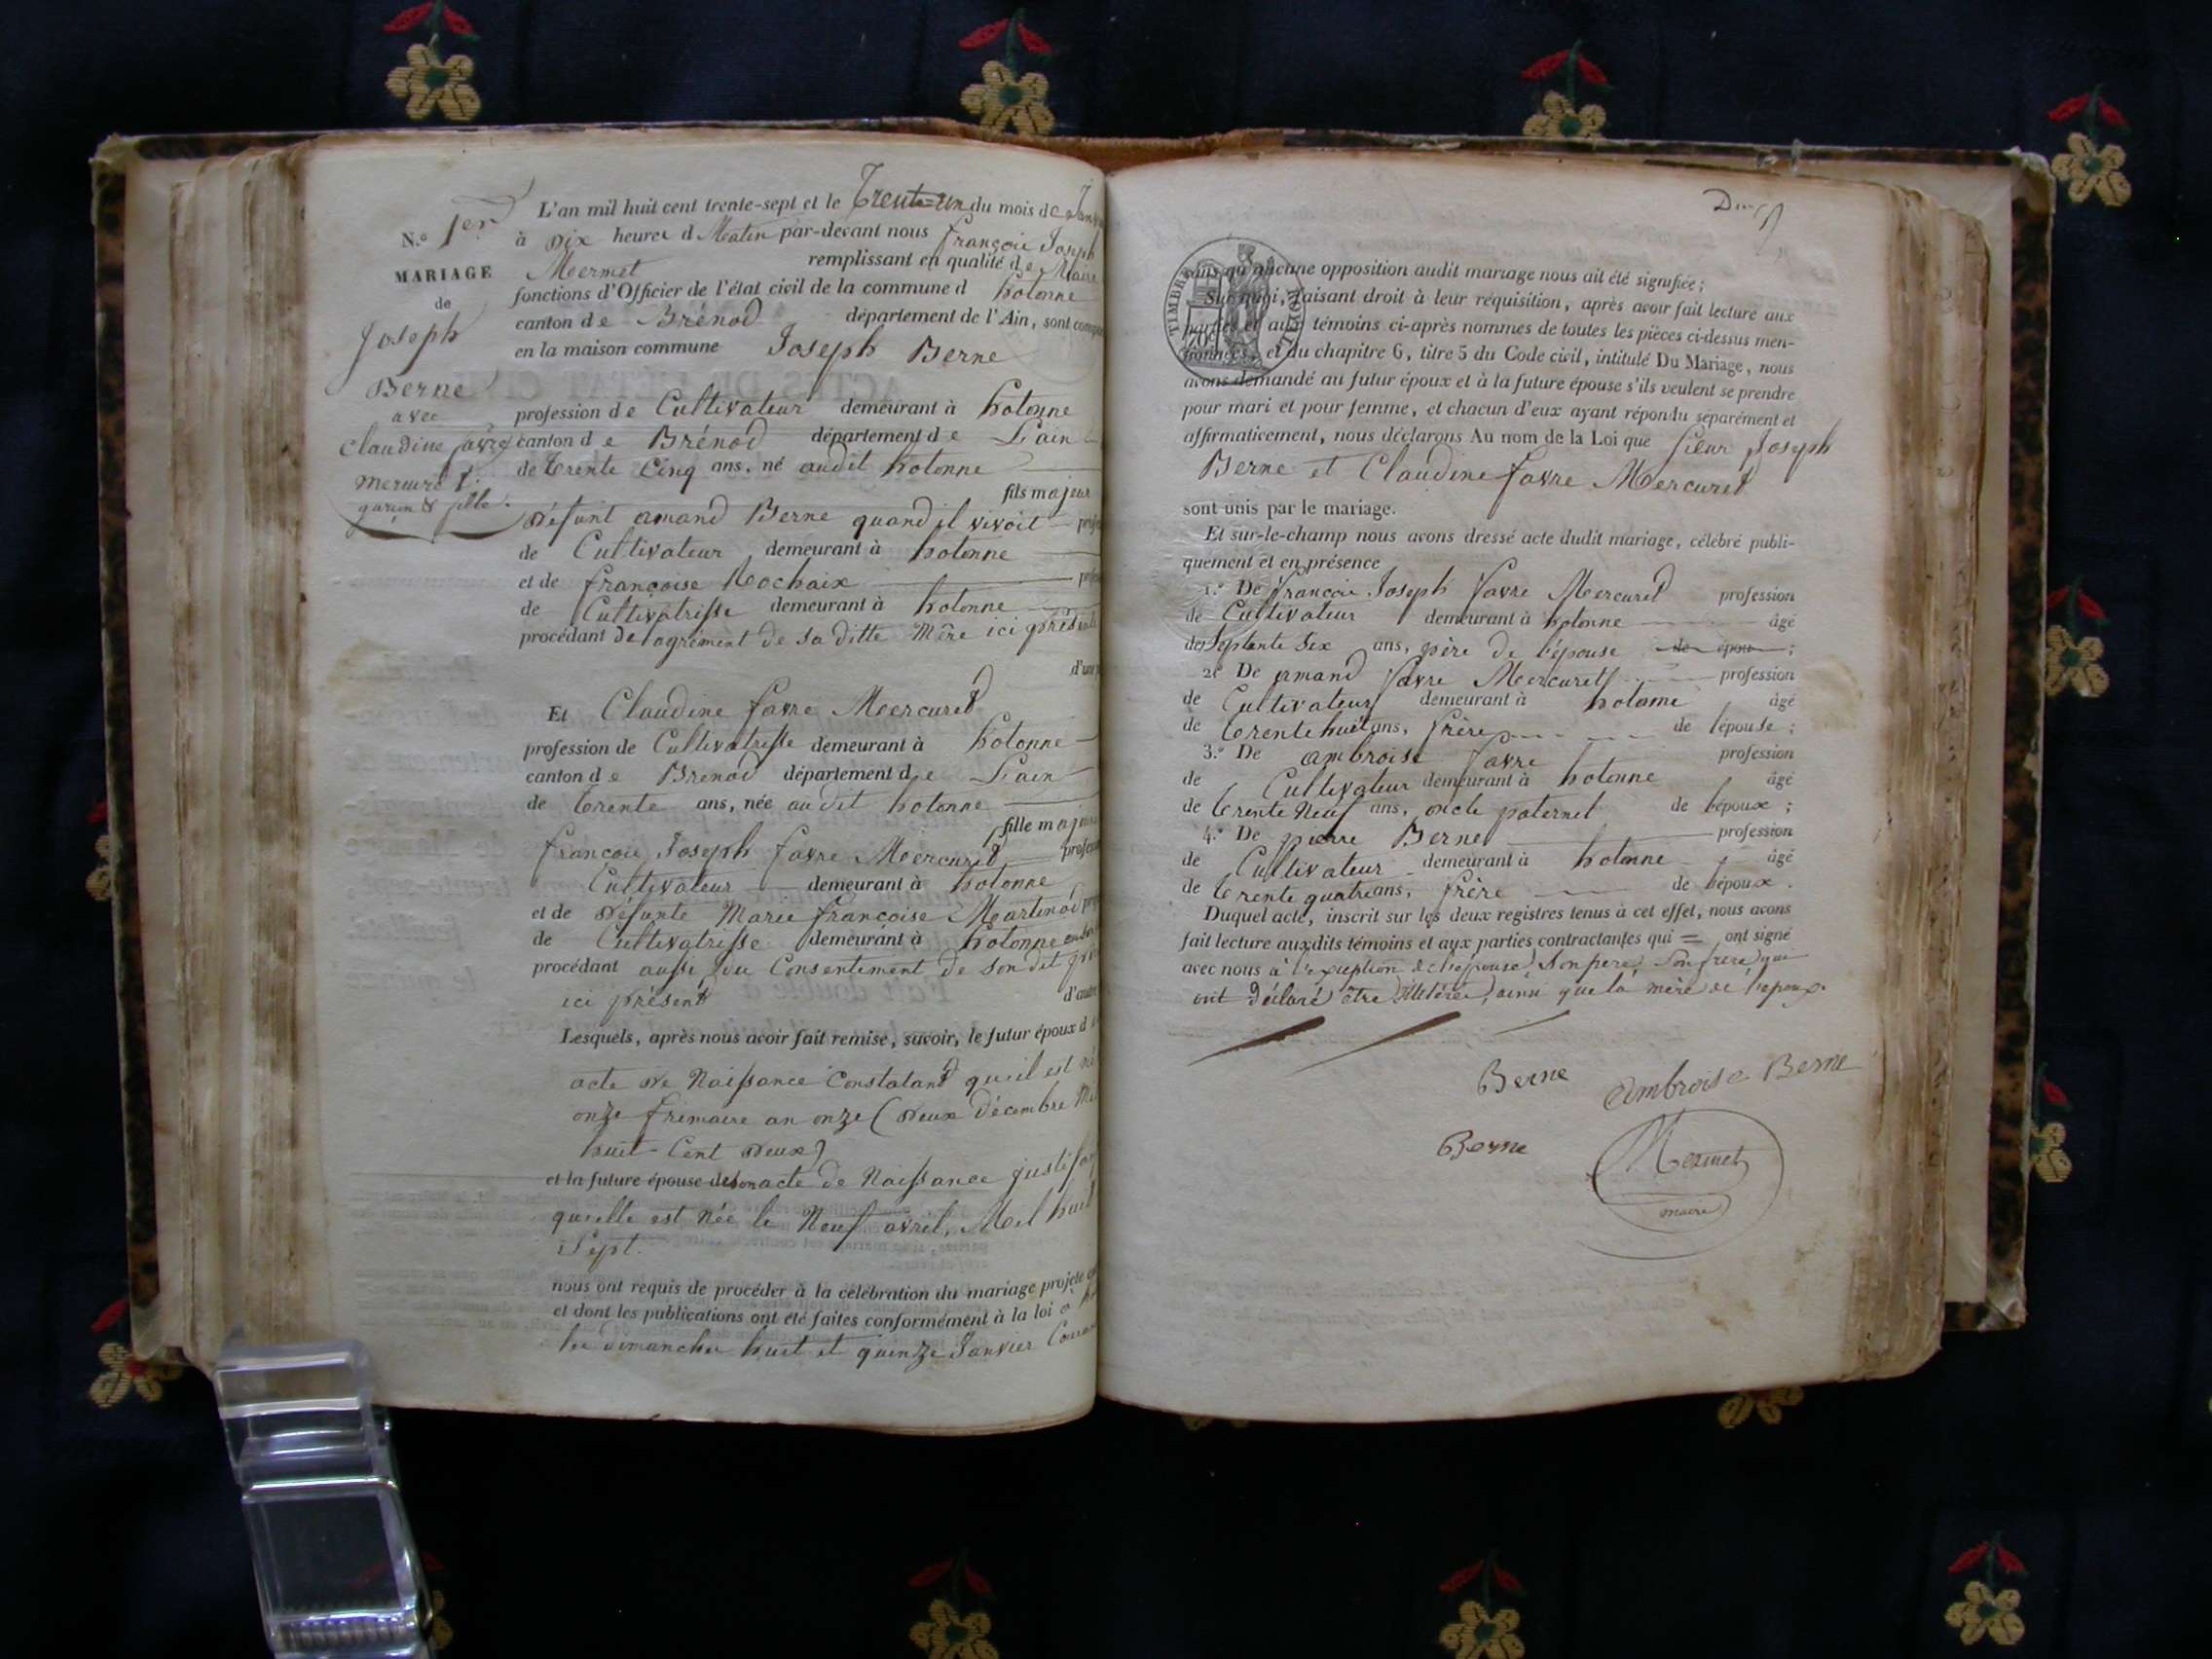 N.º 1er
MARIAGE
de
Joseph
Berne
avec
Claudine favre
Mercuret
garçon & fille.
L'an mil huit cent trente-sept et le Trente=un du mois de
à Dix heures d Matin par-devant nous françois Joseph
Mermet remplissant en qualité de Maire
fonctions d'Officier de l'état civil de la commune d hotonne
canton de Brénod département de l'Ain, sont
en la maison commune Joseph Berne
profession de Cultivateur demeurant à hotonne
canton de Brénod département de L'ain
de trente Cinq ans, né audit hotonne
fils majeur
défunt amand Berne quand il vivoit
de Cultivateur demeurant à hotonne
et de françoise Rochaix
de Cultivatrisse demeurant à hotonne
procédant de l'agrément de sa ditte Mère ici présente
d'une
Et Claudine favre Mercuret
profession de Cultivatrisse demeurant à hotonne
canton de Brenod département de L'ain
de trente ans, née audit hotonne
fille majeure
françois Joseph favre Mercuret
Cultivateur demeurant à hotonne
et de défunte Marie françoise Martinod
de Cultivatrisse demeurant à hotonne
procédant aussi du Consentement de son dit
ici présent d'autre
Lesquels, après nous avoir fait remise, savoir, le futur époux d
acte de Naissance Constatant qu'il est né
onze frimaire an onze (deux décembre Mil
huit-Cent deux)
et la future épouse de son acte de Naissance
qu'elle est née le Neuf avril, Mil huit
Sept.
nous ont requis de procéder à la célébration du mariage projeté
et dont les publications ont été faites conformément à la loi à
les dimanches huit et quinze Janvier
Deux
TIMBRE ROYAL
70c
sans qu'aucune opposition audit mariage nous ait été signifiée;
Sur quoi, faisant droit à leur réquisition, après avoir fait lecture aux
parties et aux témoins ci-après nommés de toutes les pièces ci-dessus men-
tionnées, et du chapitre 6, titre 5 du Code civil, intitulé Du Mariage, nous
avons demandé au futur époux et à la future épouse s'ils veulent se prendre
pour mari et pour femme, et chacun d'eux ayant répondu séparément et
affirmativement, nous déclarons Au nom de la Loi que sieur Joseph
Berne et Claudine favre Mercuret
sont unis par le mariage.
Et sur-le-champ nous avons dressé acte dudit mariage, célébré publi-
quement et en présence
1.º De françois Joseph favre Mercuret profession
de Cultivateur demeurant à hotonne âgé
de Septante Six ans, père de l'épouse de épou ;
2.º De amand favre Mercuret profession
de Cultivateur demeurant à hotonne âgé
de trente huit ans, frère de l'épouse ;
3.º De ambroise favre profession
de Cultivateur demeurant à hotonne âgé
de trente Neuf ans, oncle paternel de l'époux ;
4.º De pierre Berne profession
de Cultivateur demeurant à hotonne âgé
de trente quatre ans, frère de l'époux.
Duquel acte, inscrit sur les deux registres tenus à cet effet, nous avons
fait lecture auxdits témoins et aux parties contractantes qui = ont signé
avec nous à l'exception de l'épouse, son père, son frère qui
ont déclaré être illitérés, ainsi que la mère de l'époux.
Berne
Ambroise Berne
Berne
Mermet
maire